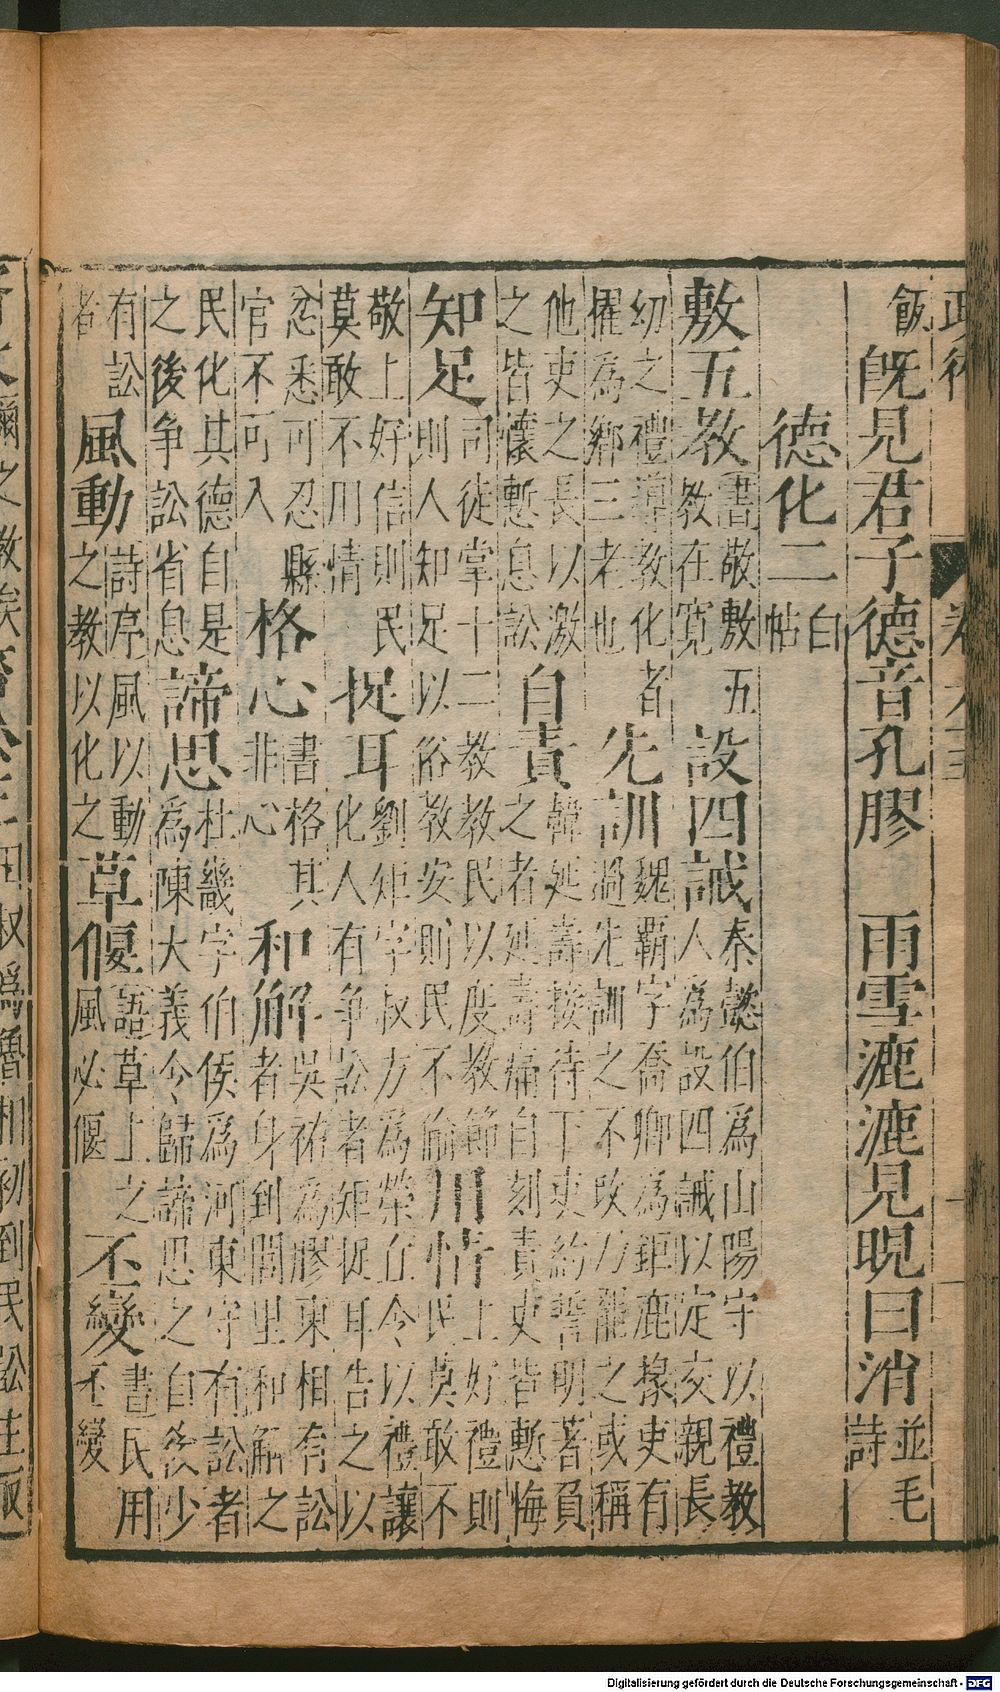 飯既見君子德音孔膠　雨雪漉漉見晛曰消並毛詩
德化二白帖
敷五教書敬敷五教在寬設四誡秦懿伯爲山陽守以禮教人爲設四誡以定交親長
幼之禮導教化者擢為鄉三老也先訓魏霸字喬卿為鉅鹿掾吏有過先訓之不改乃罷之或稱
他吏之長以激之皆懷慙息訟自責韓延壽接待下吏約誓明著負之者延壽痛自刻責吏皆慙悔
知足司徒掌十二教教民以度教節則人知足以俗教安則民不偷用情上好禮則民莫敢不
敬上好信則民莫敢不用情捉耳劉矩字叔方為榮丘令以禮讓化人有爭訟者矩捉耳告之以
忿恚可忍縣官不可入格心書格其非心和解吳祐為膠東相有訟者身到閭里和解之
民化其德自是之後爭訟省息諦思杜畿字伯侯爲河東守有訟者爲陳大義令歸諦思之自後少
有訟者風動詩序風以動之教以化之草偃語草上之風必偃丕變書民用丕變
爾之教矣 田叔爲魯相初到民訟
Digitalisierung gefördert durch die Deutsche Forschungsgemeinschaft - DFG